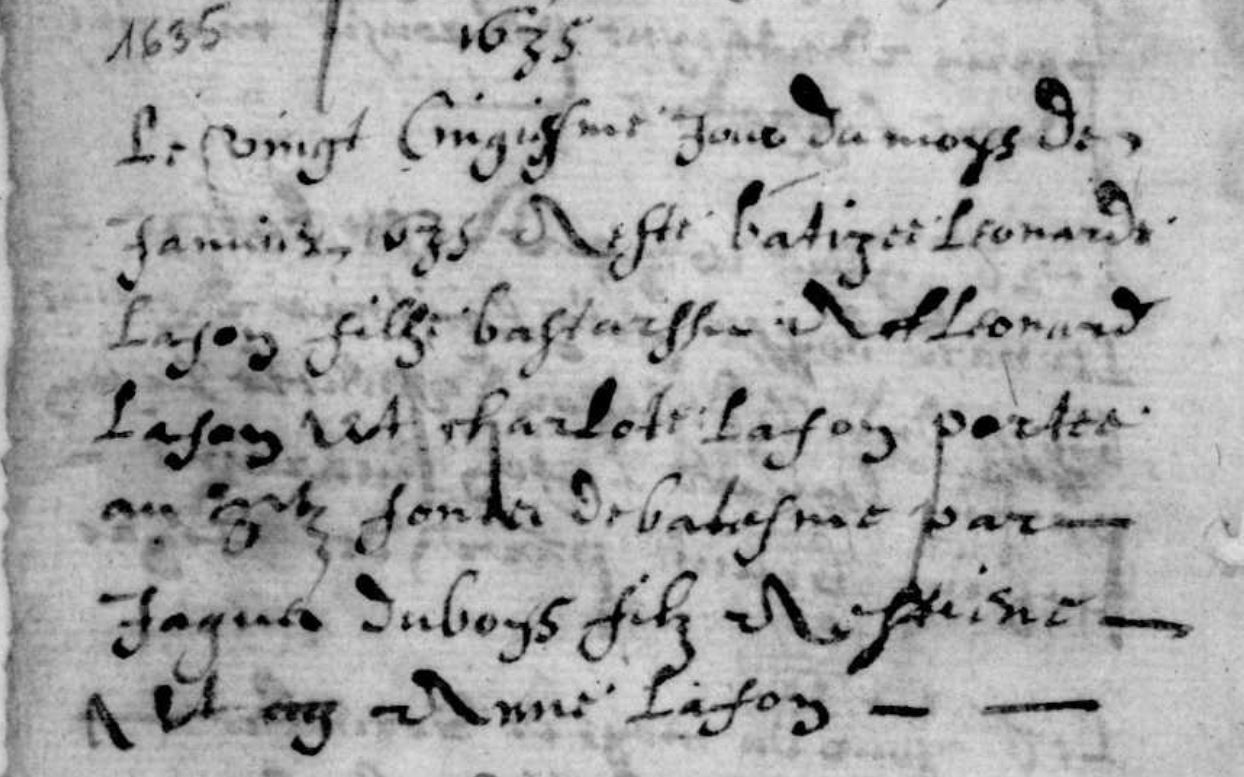 1635 1635
Le vingt cinqiesme jour du moys de
Janvier 1635 A este batizee Leonarde
Lafon fillhe bastarsse A Leonard
Lafon et charlote Lafon portee
au fontz de batesme par
Jaques duboys filz A estiene
et Anne Lafon